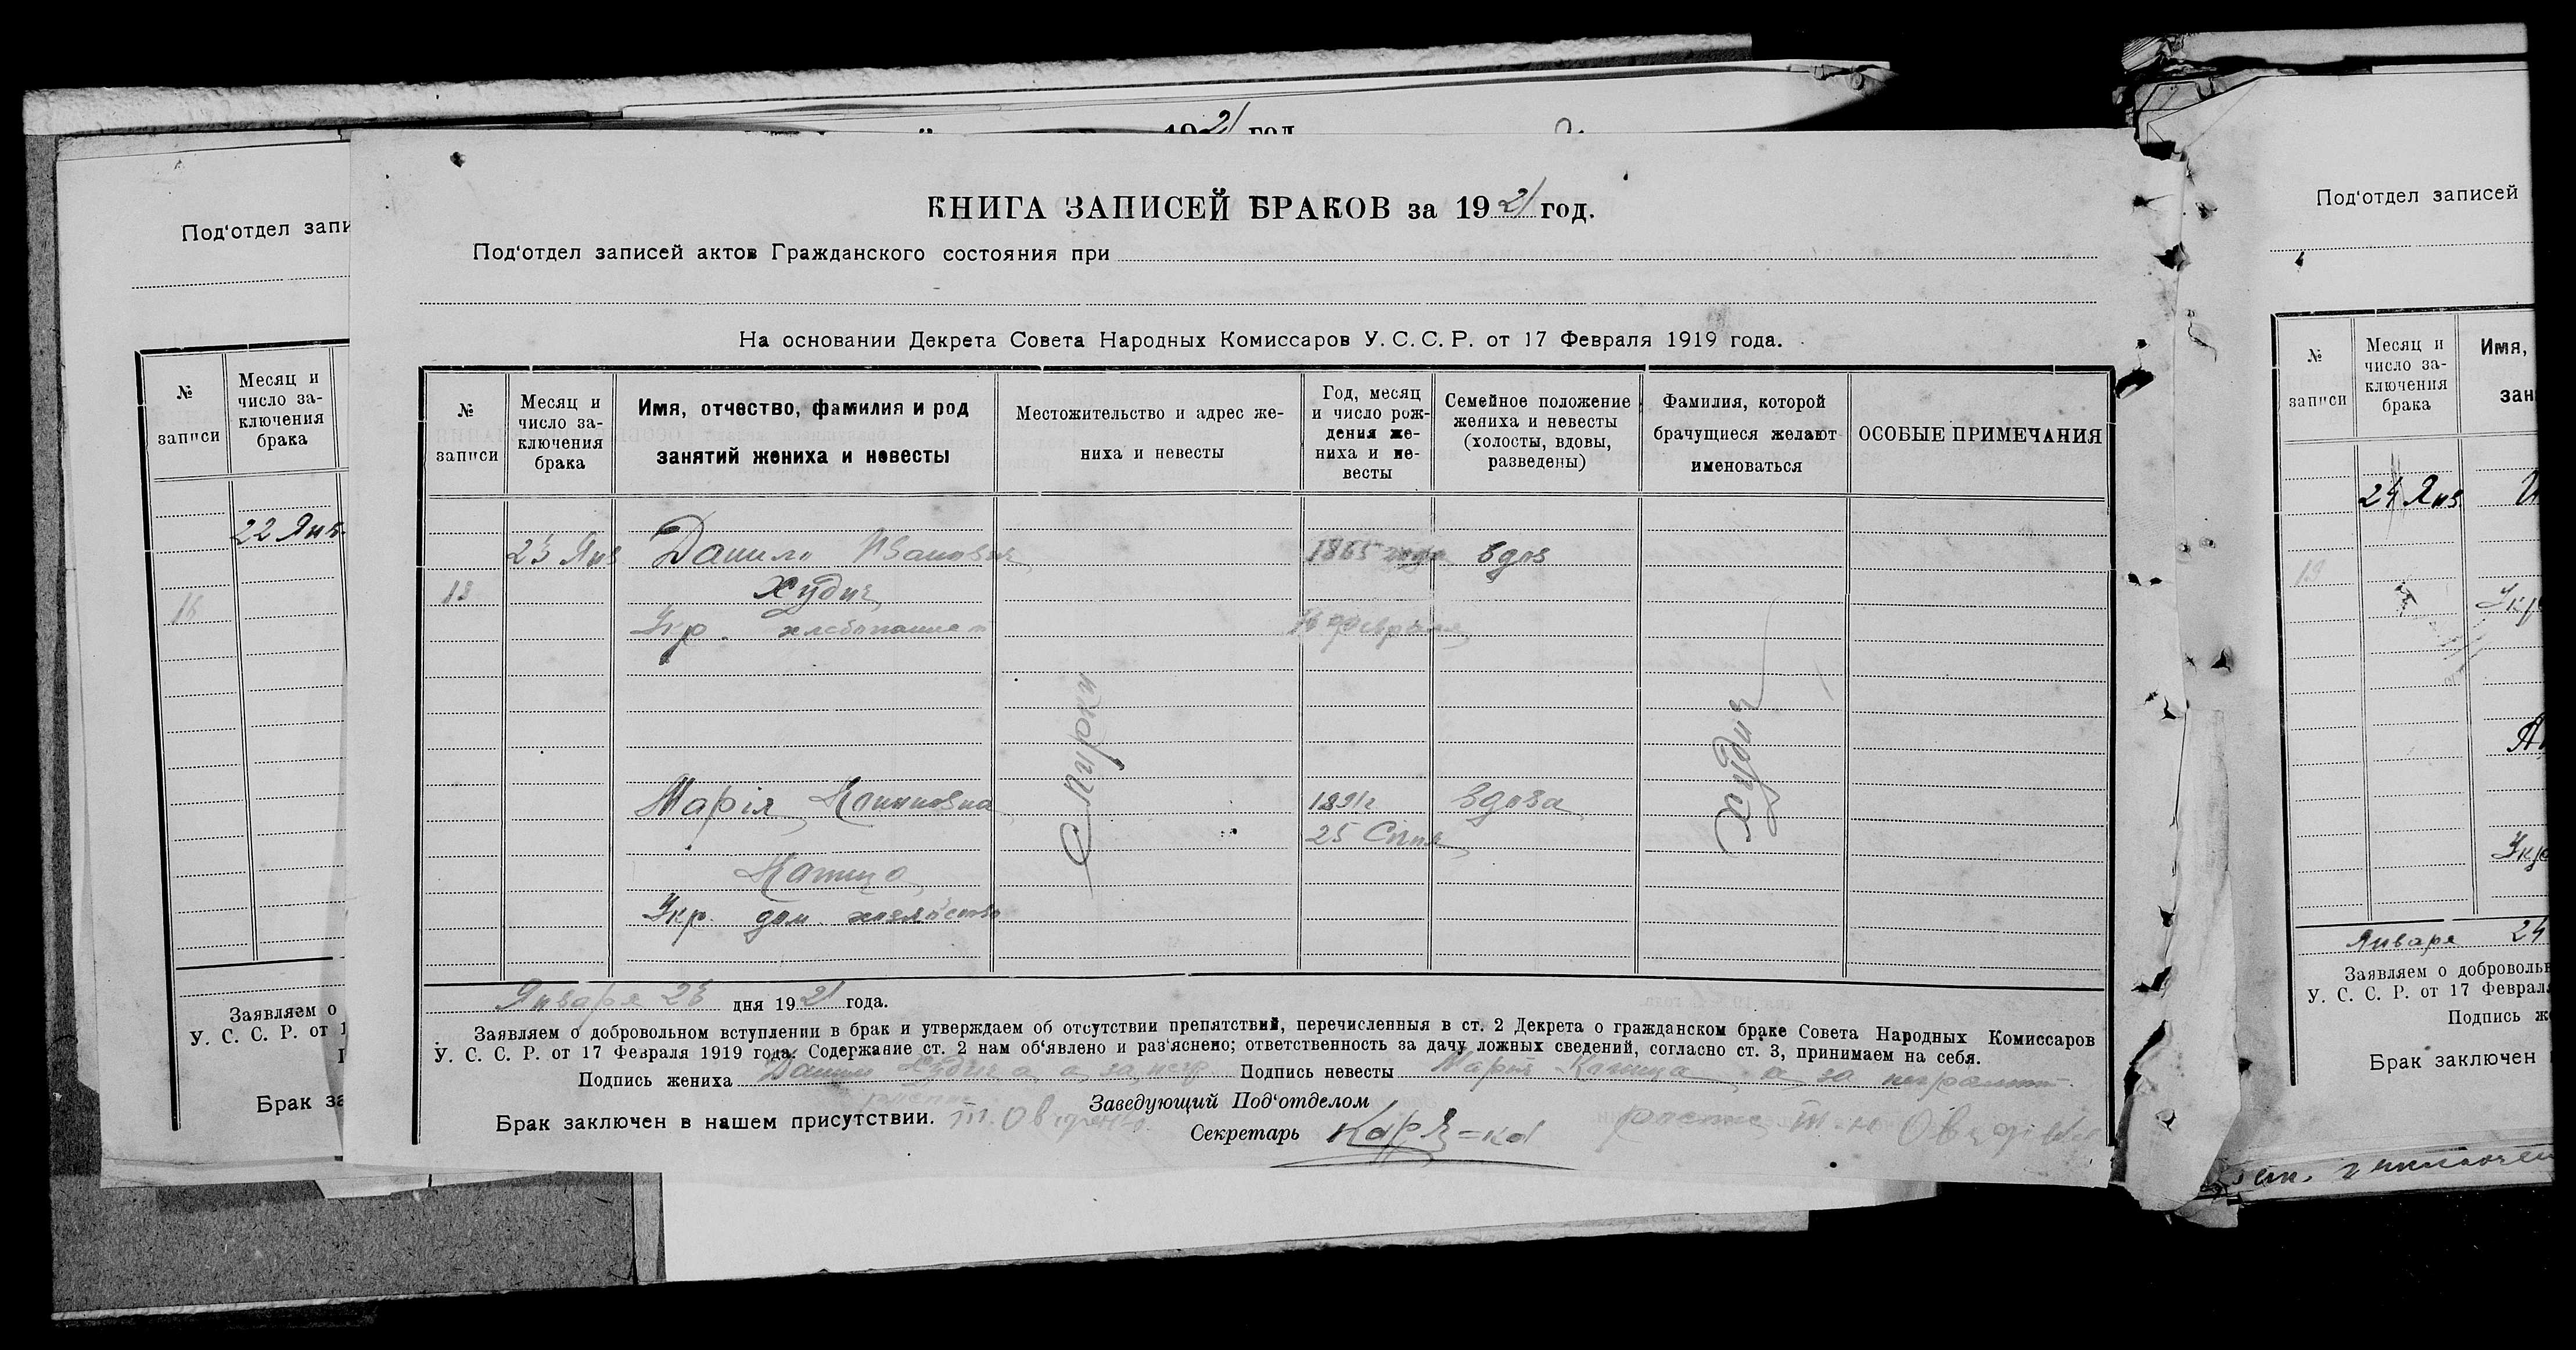 1921 год
КНИГА ЗАПИСЕЙ БРАКОВ за 1921 год.
Под‘отдел записей актов Гражданского состояния при
На основании Декрета Совета Народных Комиссаров У. С. С. Р. от 17 Февраля 1919 года.
№ записи
Месяц и число за-
ключения брака
Имя, отчество, фамилия и род
занятий жениха и невесты
Местожительство и адрес же-
ниха и невесты
Год, месяц
и число рож-
дения же-
ниха и не-
весты
Семейное положение
жениха и невесты
(холосты, вдовы,
разведены)
Фамилия, которой
брачущиеся желают
именоваться
ОСОБЫЕ ПРИМЕЧАНИЯ
23 Янв Данило Иванович 1865 года вдов
Худич
Укр. хлебопашест
Февраля
Худич
Марія 1891г вдова
25
Укр. дом. хозяйство
Января 23 дня 1921 года.
Заявляем о добровольном вступлении в брак и утверждаем об отсутствии препятствий, перечисленныя в ст. 2 Декрета о гражданском браке Совета Народных Комиссаров
У. С. С. Р. от 17 Февраля 1919 года. Содержание ст. 2 нам об‘явлено и раз‘яснено; ответственность за дачу ложных сведений, согласно ст. 3, принимаем на себя.
Подпись жениха Данило Подпись невесты Марія а за
Заведующий Под‘отделом
Брак заключен в нашем присутствии.
Секретарь
Под‘отдел запи
№ записи
Месяц и
число за-
ключения
брака
22 Янв.
Заявляем о
У. С. С. Р. от 1
Брак за
Под‘отдел записей
№ записи
Месяц и
число за-
ключения
брака
Имя,
зан
24 Янв
Укр
Укр
Января 24
Заявляем о доброволь
У. С. С. Р. от 17 Феврал
Подпись ж
Брак заключен